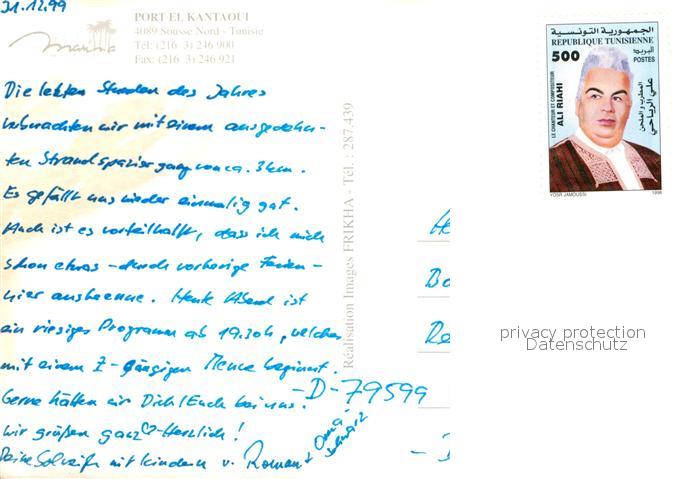 31.12.99
PORT EL KANTAOUI
4089 Sousse Nord - Tunisie
Tél: (216 3) 246 900
Fax: (216 3) 246 921
marhaba
Die letzten Stunden des Jahres
verbrachten wir mit einem ausgedehn-
ten Strandspaziergang von ca. 3km.
Es gefällt uns wieder einmalig gut.
Auch ist es vorteilhaft, dass ich mich
schon etwas - durch vorherige Ferien -
hier auskenne. Heute Abend ist
ein riesiges Programm ab 19.30h, welches
mit einem 7-gängigen Menue beginnt.
Gerne hätten wir Dich/Euch bei uns.
Wir grüßen ganz ♡-Herzlich!
Deine mit Kindern v. Roman +
Oma
Réalisation Images FRIKHA - Tél.: 287.439
الجمهورية التونسية
REPUBLIQUE TUNISIENNE
500
البريد
POSTES
LE CHANTEUR ET COMPOSITEUR
ALI RIAHI
المطرب و الملحن
علي الرياحي
YOSR JAMOUSSI
1998
Bo
Re
-D-79599
privacy protection
Datenschutz